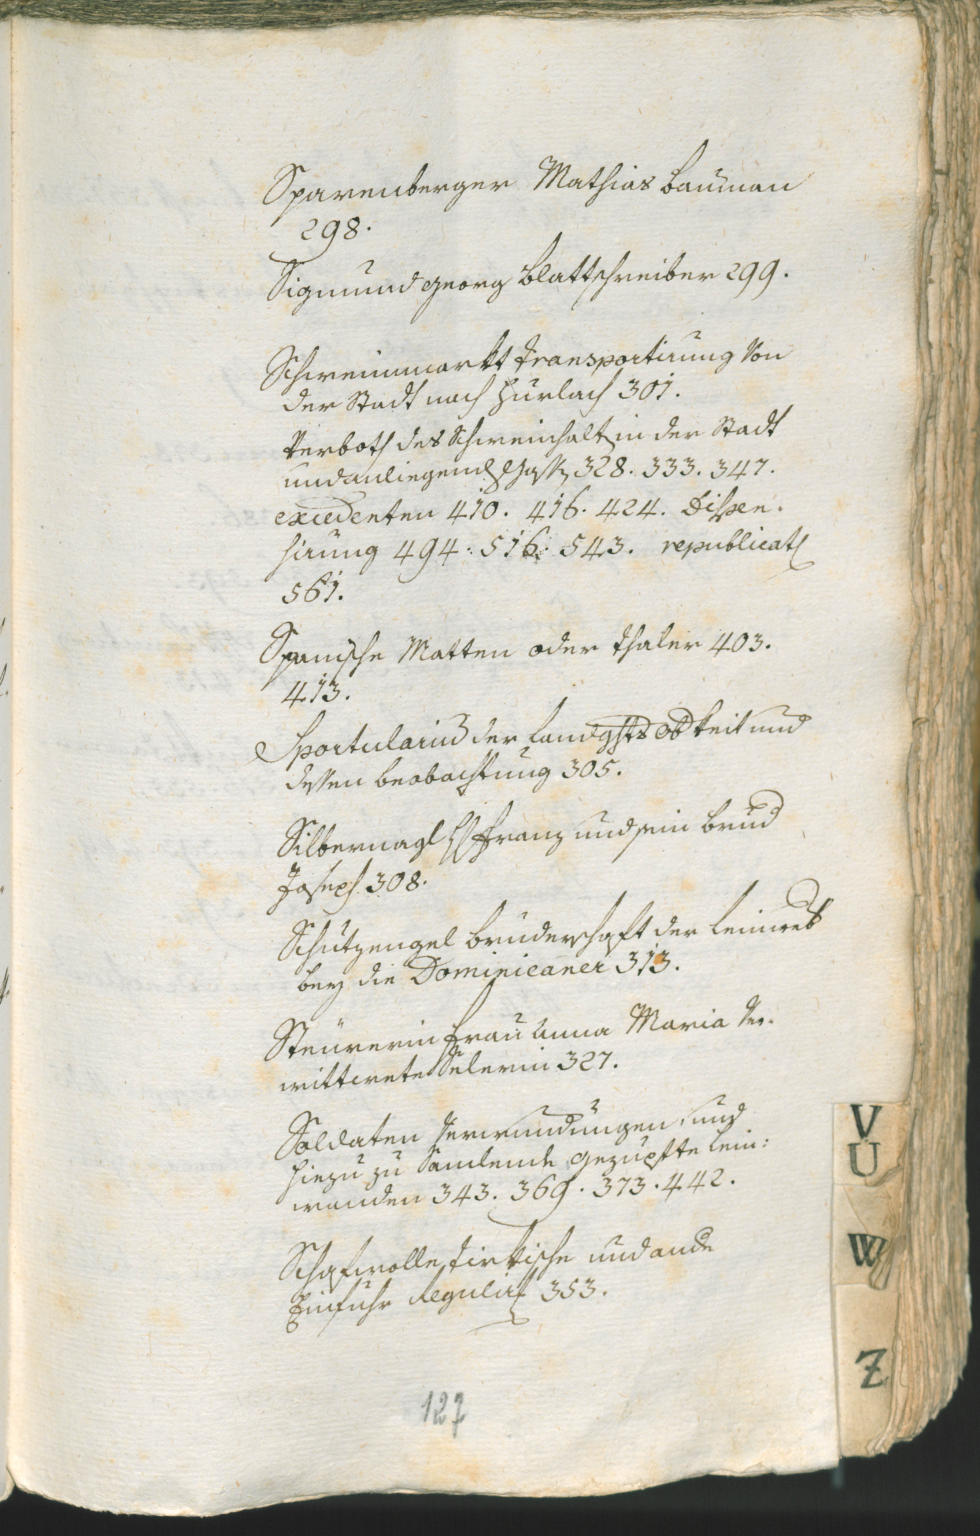 Sparenberger Mathias bauman
298.
Sigmund georg blattschreiber 299.
Schweinmarkt transportirung von
der Stadt nach Hurlach 301.
Verboth des Schweinhalt in der Stadt
und anliegend 328. 333. 347.
excedenten 410. 416. 424. Dispen.
sirung 494. 516. 543. republicat
561.
Spanische Matten oder thaler 403.
413.
Sportularium der Landghts obkeit und
dessen beobachtung 305.
Silbernagl Franz und sein brud
Joseph 308.
Schutzengel bruderschaft der
bey die Dominicaner 313.
Steurerin frau Anna Maria ver.
wittwete 327.
Soldaten Verwundungen, und
hiezu zu Samlende gezupfte lein:
wanden 343. 369. 373. 442.
Schafwolle, tirkische und ande
Einfuhr Regulir 353.
127
V
U
W
Z